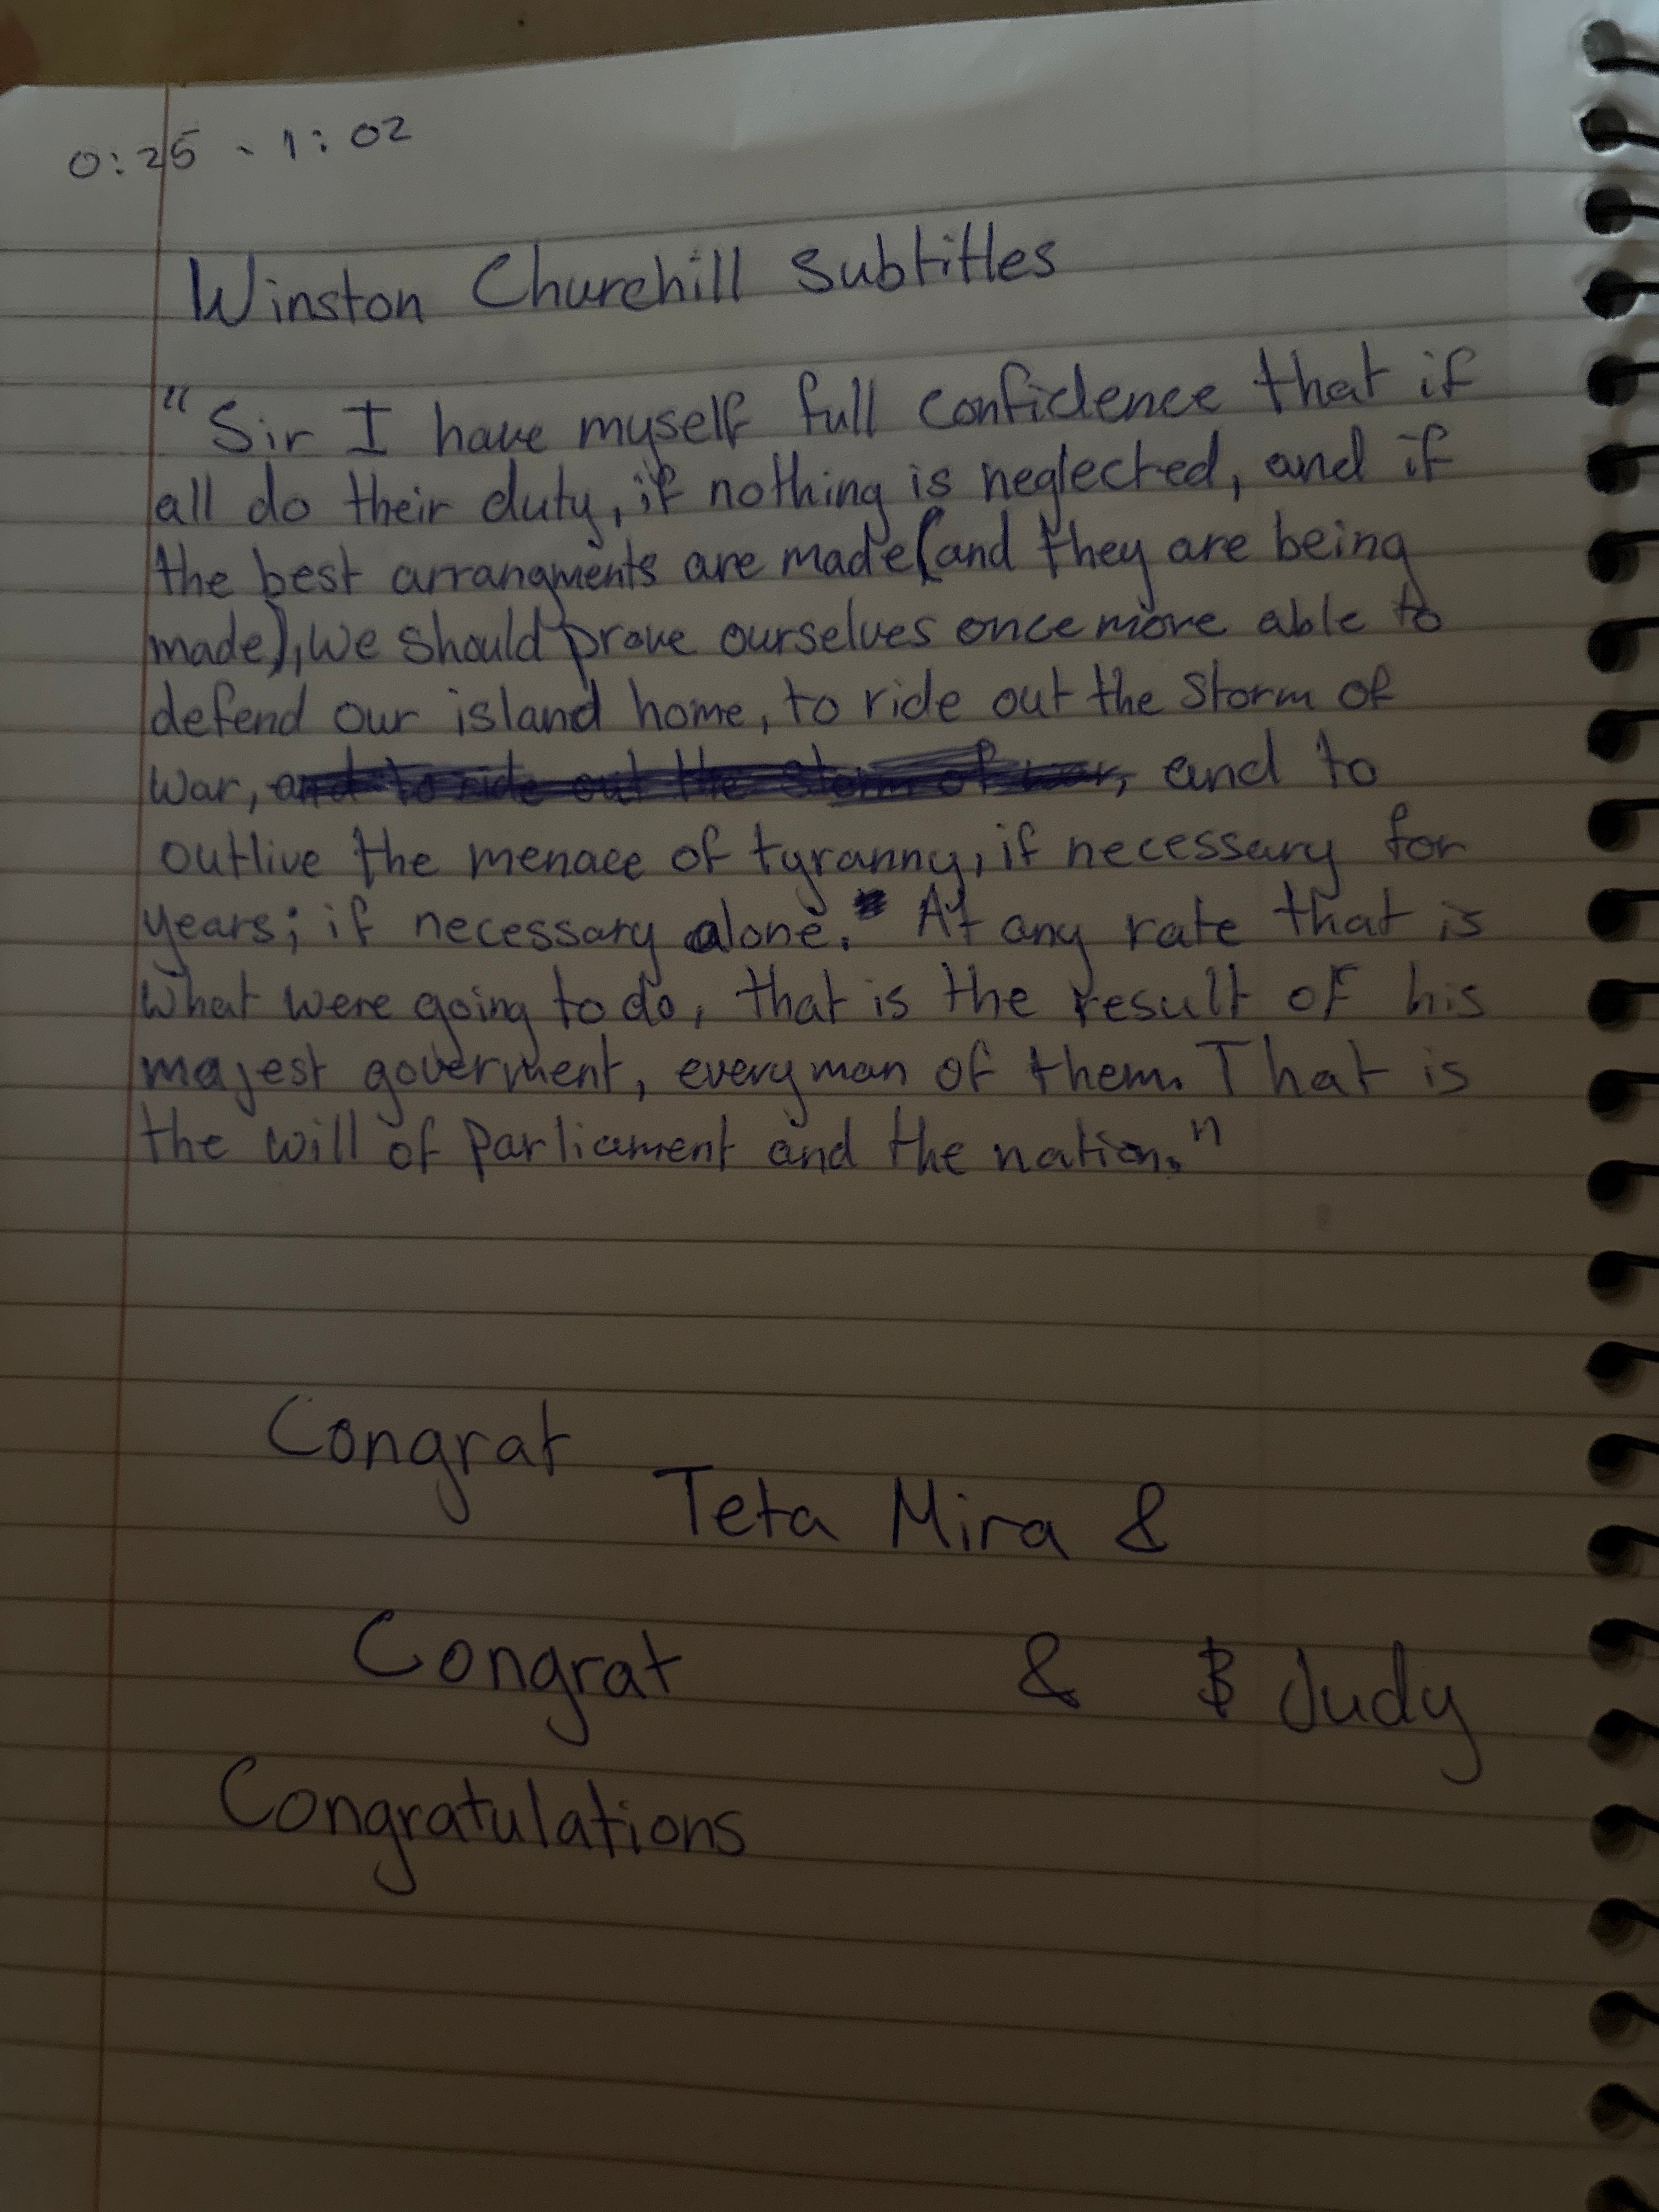 0:25 - 1:02
Winston Churchill Subtitles
"Sir I have myself full confidence that if
all do their duty, if nothing is neglected, and if
the best arrangments are made (and they are being
made), we should prove ourselves once more able to
defend our island home, to ride out the storm of
war, and to ride out the storm of war, and to
outlive the menace of tyranny, if necessary for
years; if necessary alone. At any rate that is
what were going to do, that is the result of his
majest goverment, every man of them. That is
the will of parliament and the nation."
Congrat
Teta Mira &
Congrat & Judy
Congratulations